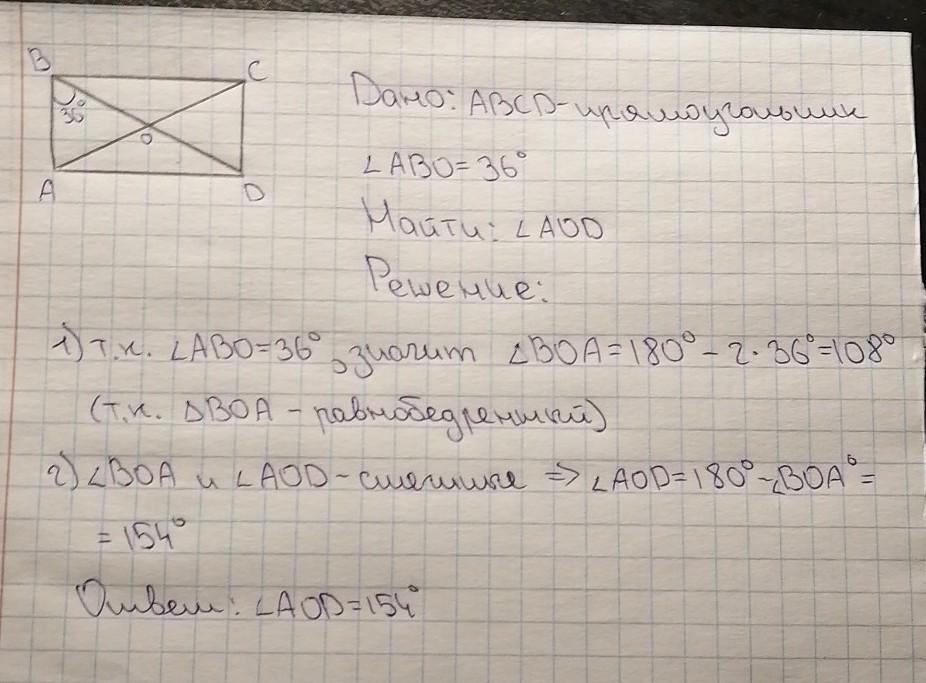 B
C
36°
O
A
D
Дано: ABCD-прямоугольник
∠ABO=36°
Найти: ∠AOD
Решение:
1) т.к. ∠ABO=36°, значит ∠BOA=180°-2·36°=108°
(т.к. ΔBOA - равнобедренный)
2) ∠BOA и ∠AOD-смежные ⇒ ∠AOD=180°-∠BOA°=
=154°
Ответ: ∠AOD=154°